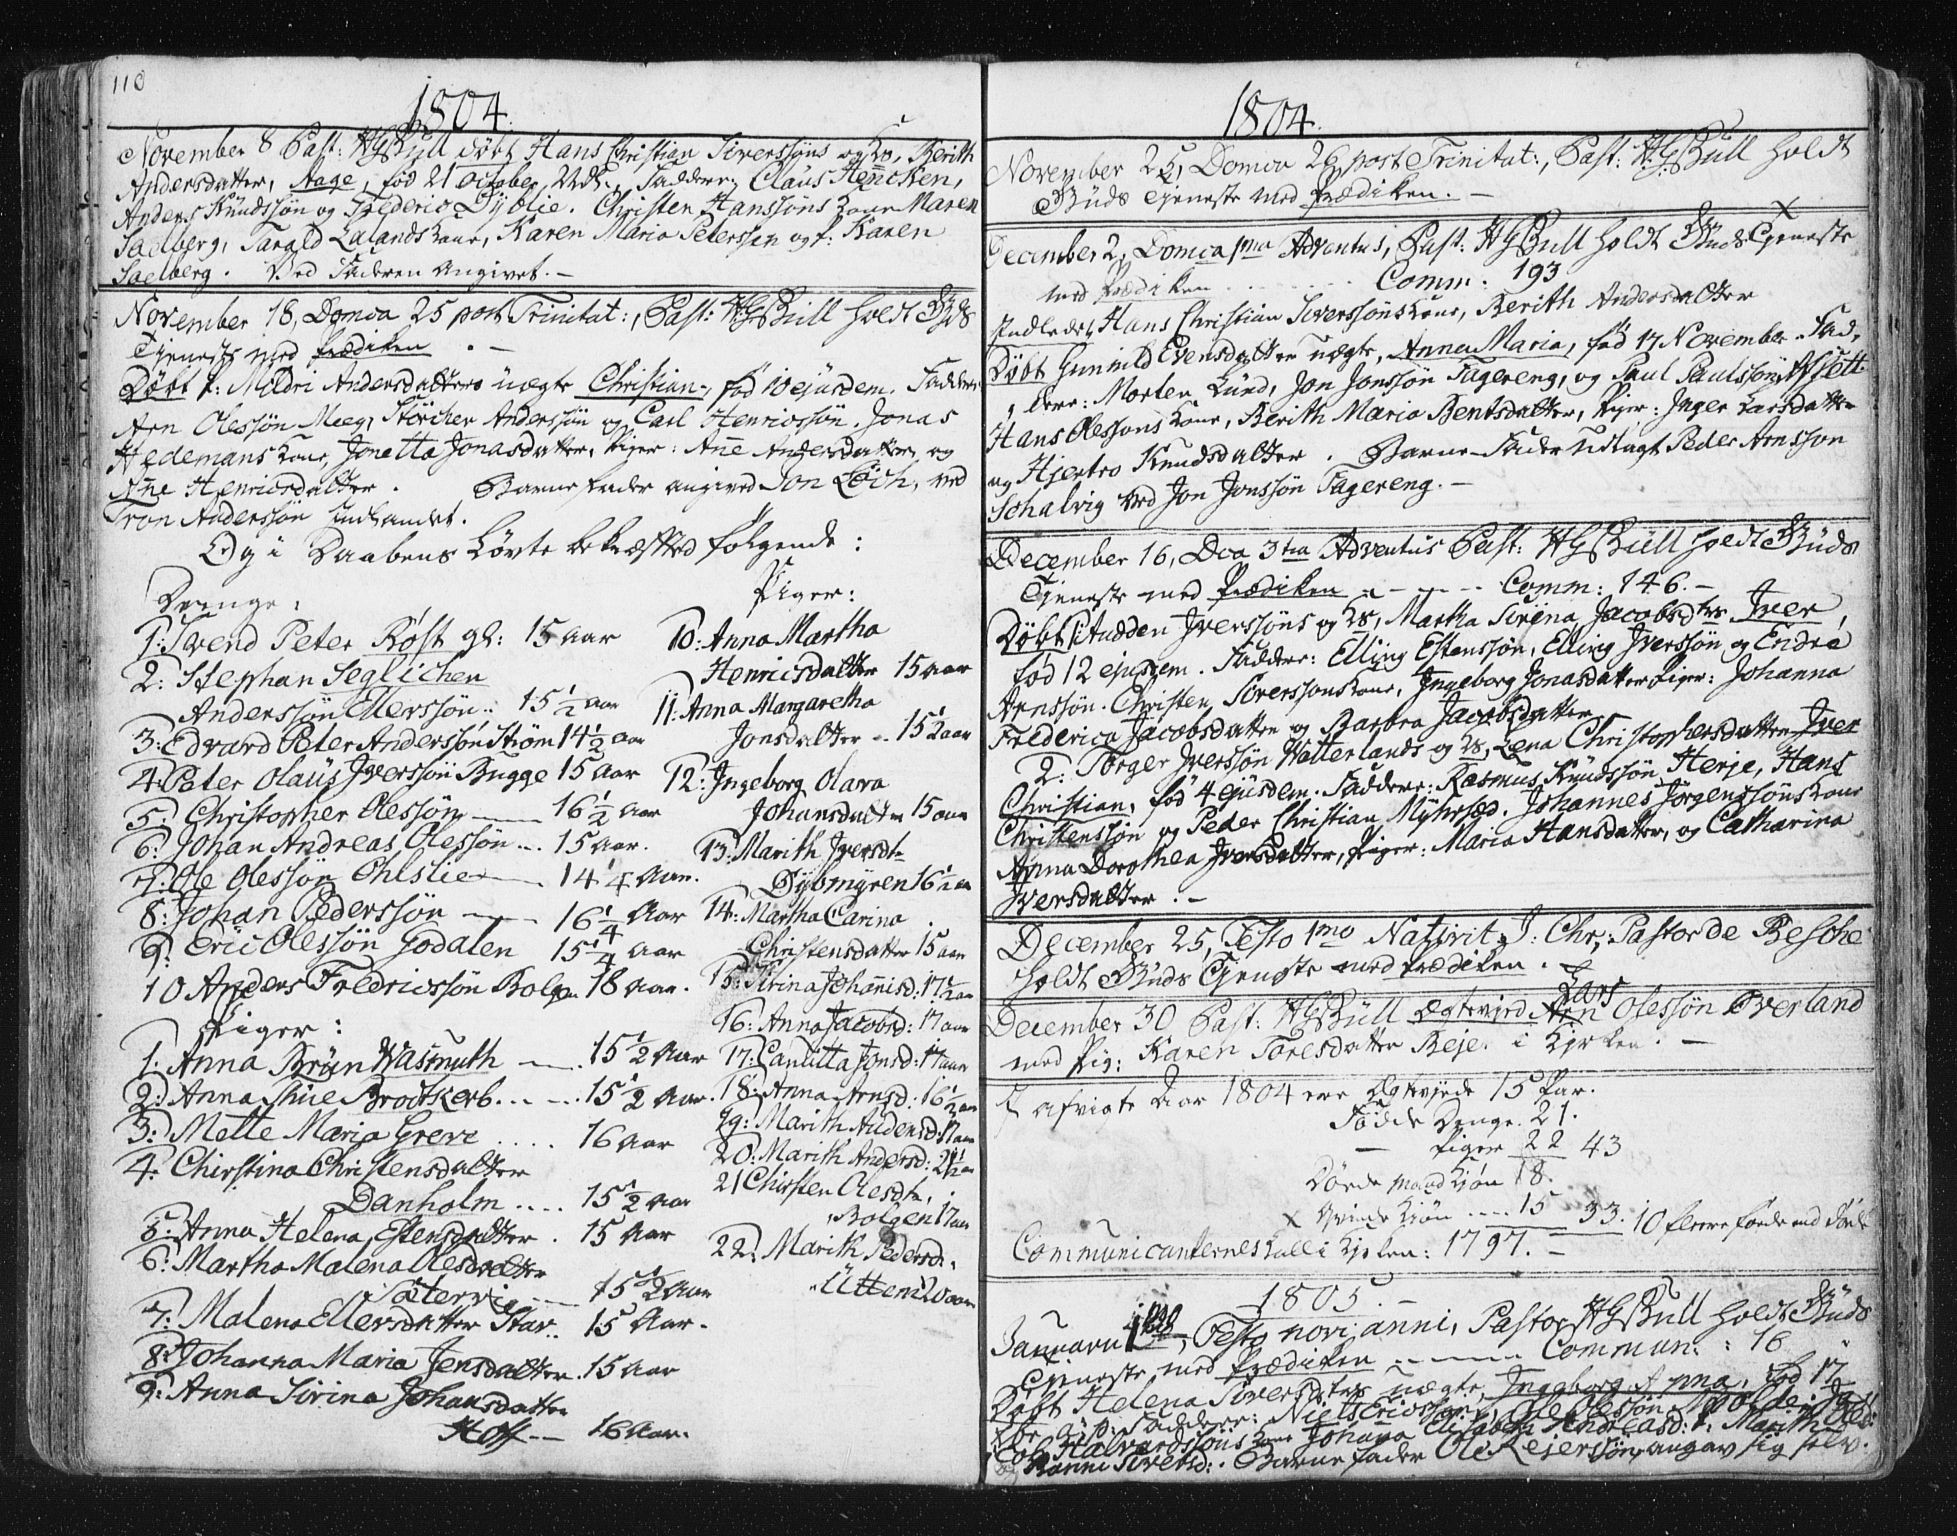 110
1804.
November 8 Past: HGBull döbt Hans Christian Siverssöns og Berith
Andersdatter, Aage, fød 21 October, Faddere: Claus Hencken,
Anders Knudssøn og Frederic Christen Hanssøns Kone Maren
Sadberg, Tarald Lalands Kone, Karen Maria Peterssen og f: Karen
Saelberg. Ved Faderen angivet. -
November 18, Domca 25 post Trinitat:, Past: HGBull holdt Guds
Tjeneste med Prædiken. -
Döbt f: Mildri Andersdatters uægte Christian, fød 10 ejusdem. Faddere
Arn Olessøn Meeg, Störcher Anderssøn og Carl Henricssøn. Jonas
Hedemans Kone, Jonetta Jonasdatter, Piger: Añe Andersdatter og
Añe Henricsdatter. Barnefader angived Jon Loch, ved
Tron Anderssøn
Og i Daabens Løvte bekræfted følgende:
Drenge:
1: Svend Peter Røst gl: 15 aar
2: Stephan Seglichen
Anderssøn Ellerssøn.. 15 1/2 aar
3: Edvard Peter Anderssøn Strøm 14 1/2 aar
4: Peter Olaüs Iverssøn Bugge 15 aar
5: Christopher Olessøn 16 1/2 aar
6: Johan Andreas Olessøn 15 aar.
7: Ole Olessøn Ohlslie 14 1/4 aar.
8: Johan Pederssøn 16 1/4 aar
9: Eric Olessøn Godalen 15 1/4 aar
10 Anders Fredricssøn Bolgen 18 aar.
Piger:
1: Anna Brün Wasmuth 15 1/2 aar
2: Anna Stine Brodtkorb 15 1/2 aar.
3: Mette Maria Greve 16 aar
4: Chirstina Christensdatter
Danholm 15 1/2 aar
5: Anna Helena Estensdatter. 15 aar
6: Martha Malena Olesdatter
Sätervig 15 1/2 aar
7: Malena Ellersdatter Star.. 15 aar.
8: Johanna Maria Jensdatter. 15 aar
9: Anna Sirina Johansdatter
Hoff 16 aar.
Piger:
10: Anna Martha
Henricsdatter 15 aar
11: Anna Margaretha
Jonsdatter 15 1/2 aar
12: Ingeborg Olava
Johansdatter 15 aar
13: Marith Iversdtr
Dybmyren 16 1/2 aar
14: Martha Carina
Christensdatter 15 aar
15: Sirina Johañisd: 17 1/2 aar
16: Anna Jacobsd: 17 aar
17: Jonsd: 17 aar
18: Anna Arnsd: 16 1/2 aar
19: Marith Audensd: 17 aar
20: Marith Andersd: 21 1/2 aar
21 Chirsten Olesdtr.
Bolgen 17 aar
22: Marith Pedersd:
Utteni 20 aar
1804.
November 25, Domca 26 post Trinitat:, Past: HGBull holdt
Guds Tjeneste med Prædiken. -
December 2, Domca 1ma Adventus, Past: HGBull holdt Guds Tjeneste
med Prædiken Comm: 193
Indledet, Hans Christian Siverssøns Kone, Berith Andersdatter
Döbt Gunnild Evensdatter uægte, Anna Maria, fød 17 November. Fad,
dere: Morten Lund, Jon Jonssøn Fagereng, og Paul Paulssøn
Hans Olessøns Kone, Berith Maria Bentsdatter, Piger: Inger Larsdatter
og Hjertro Knudsdatter. Barne-Fader Udlagt Peder Arnsson
Schalvig ved Jon Jonssøn Fagereng. -
December 16, Dca 3tia Adventus Past: HGBull holdt Guds
Tjeneste med Prædiken Comm: 146. -
Döbt Audden Iverssøns og Martha Sirena Jacobsdtrs Iver,
fød 12 ejusdem. Faddere: Elling Estenssøn, Elling Iverssøn og Endre
Arnssøn. Christen Siverssøns Kone, Ingeborg Jonasdatter Piger: Johanna
Frederica Jacobsdatter og Barbra Jacobsdatter
2: Torger Iverssøn Watterlands og Lena Christophersdatter Iver
Christian, fød 4 ejusdem. Faddere: Rasmus Knudssøn Herje, Hans
Christenssøn og Peder Christian Myhrsed. Johannes Jørgenssøns Kone
Anna Dorothea Iversdatter, Piger: Maria Hansdatter, og Catharina
Iversdatter. -
December 25, Festo 1mo Nativit. J: Chr, Pastor de Besche
holdt Guds Tjeneste med Prædiken. -
Lars
December 30 Past: HGBull Ægtevied Arn Olessøn Overland
med Pig: Karen Toresdatter Reje. i Kirken. -
I afvigte Aar 1804 ere Ægteviede 15 Par.
Fødde Drenge. 21.
- Piger 22 43
Døede Mandkjøn 18.
x Qvindekjøn 15 33. 10 fleere fødde end døde
Communicanternes Tall i Kirken: 1797. -
1805. -
Januarii 1, Festo novi anni, Pastor HGBull holdt Guds
Tjeneste med Prædiken Commun: 16
Döbt Helena Siversdtrs uægte, Ingeborg Anna, fød 17
Faddere: Niels Ericssøn, Ole Olessøn
Halvordssøns Kone Johana Elisabeth Andreasd: f. Marith Oles
Siversd:. Barnefader Ole Rejerssøn, angav sig selv.